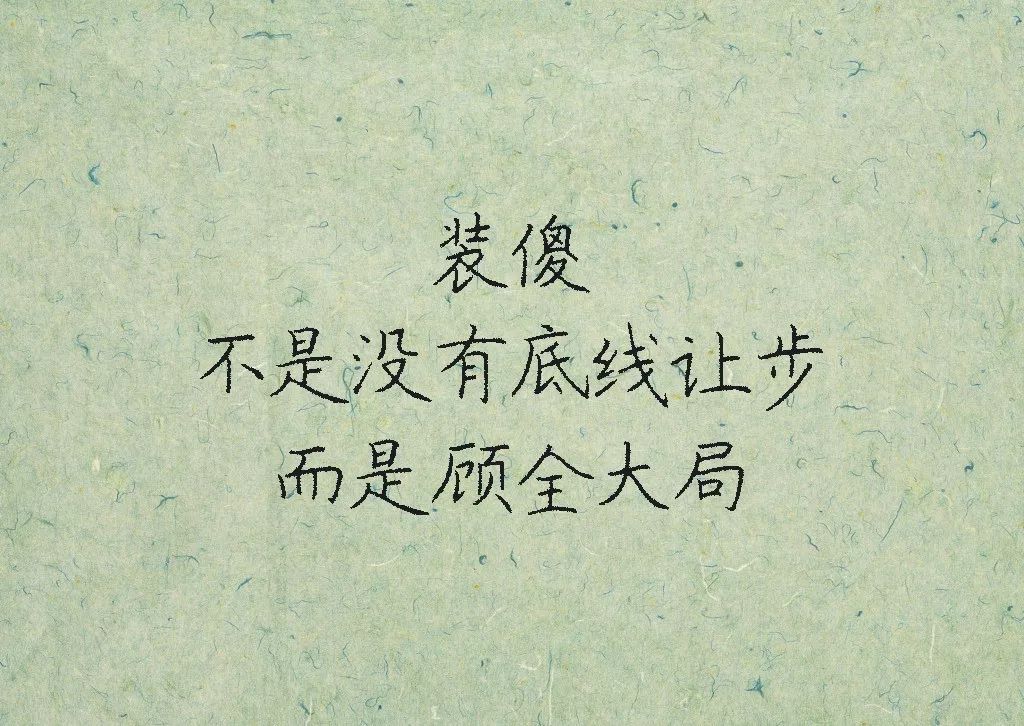 装傻
不是没有底线让步
而是顾全大局